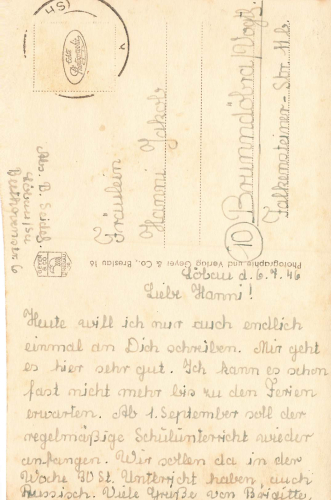 Echte
Photographie
Abs. B. Seidel
Löbau/Sa.
Beethovenstr. 6
Fräulein
Hanni Jakob
(10) Brunndöbra/Vogtl.
Falkensteiner-Str. 11b.
Photographie und Verlag Geyer & Co., Breslau 16
Löbau d. 6.7.46
Liebe Hanni!
Heute will ich nun auch endlich
einmal an Dich schreiben. Mir geht
es hier sehr gut. Ich kann es schon
fast nicht mehr bis zu den Ferien
erwarten. Ab 1. September soll der
regelmäßige Schulunterricht wieder
anfangen. Wir sollen da in der
Woche 30 St. Unterricht haben, auch
Russisch. Viele Grüße von Brigitte